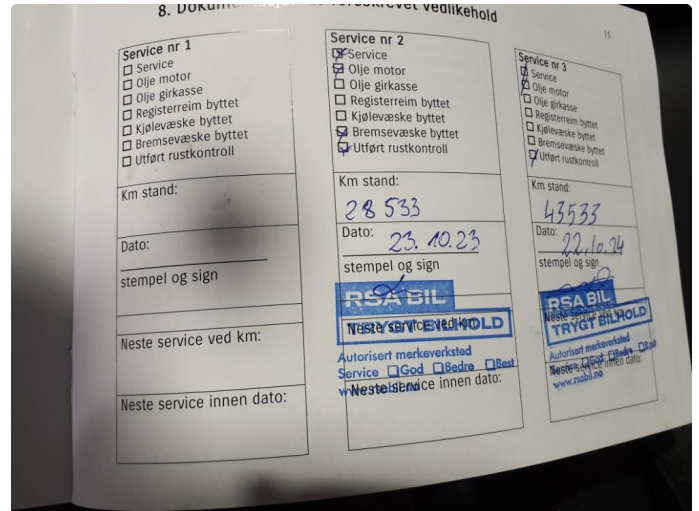 8.
vedlikehold
15
Service nr 1
Service
Olje motor
Olje girkasse
Registerreim byttet
Kjølevæske byttet
Bremsevæske byttet
Utført rustkontroll
Km stand:
Dato:
stempel og sign
Neste service ved km:
Neste service innen dato:
Service nr 2
Service
Olje motor
Olje girkasse
Registerreim byttet
Kjølevæske byttet
Bremsevæske byttet
Utført rustkontroll
Km stand:
28 533
Dato: 23.10.23
stempel og sign
RSA BIL
Neste service ved km:
TRYGT BILHOLD
Autorisert merkeverksted
Service God Bedre Best
www.rsabil.no
Neste service innen dato:
Service nr 3
Service
Olje motor
Olje girkasse
Registerreim byttet
Kjølevæske byttet
Bremsevæske byttet
Utført rustkontroll
Km stand:
43533
Dato: 22.10.24
stempel og sign
RSA BIL
Neste service ved km:
TRYGT BILHOLD
Autorisert merkeverksted
Service God Bedre Best
Neste service innen dato:
www.rsabil.no